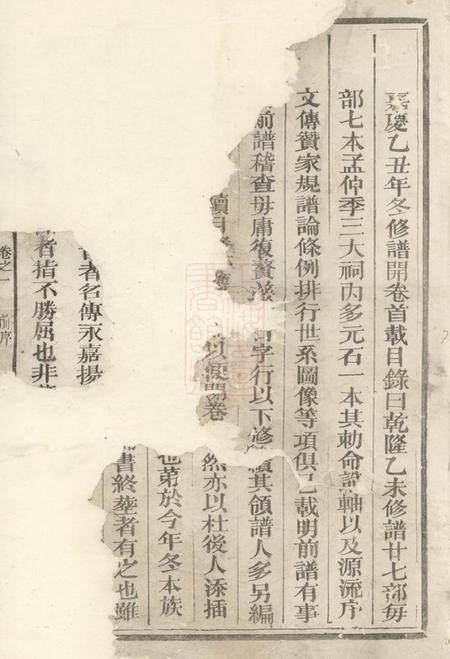 嘉慶乙丑年冬修譜開卷首載目錄曰乾隆乙未修譜廿七部每
部七本孟仲季三大祠內多元石一本其勅命誥軸以及源流序
文傳贊家規譜論條例排行世系圖像等項俱已載明前譜有事
前譜稽查毋庸復贅 字行以下修續其領譜人多另編
以便開卷 然亦以杜後人添插
也第於今年冬本族
者名傳永嘉揚 書終 者有之也雖
者指不勝屈也非
卷之一 前序